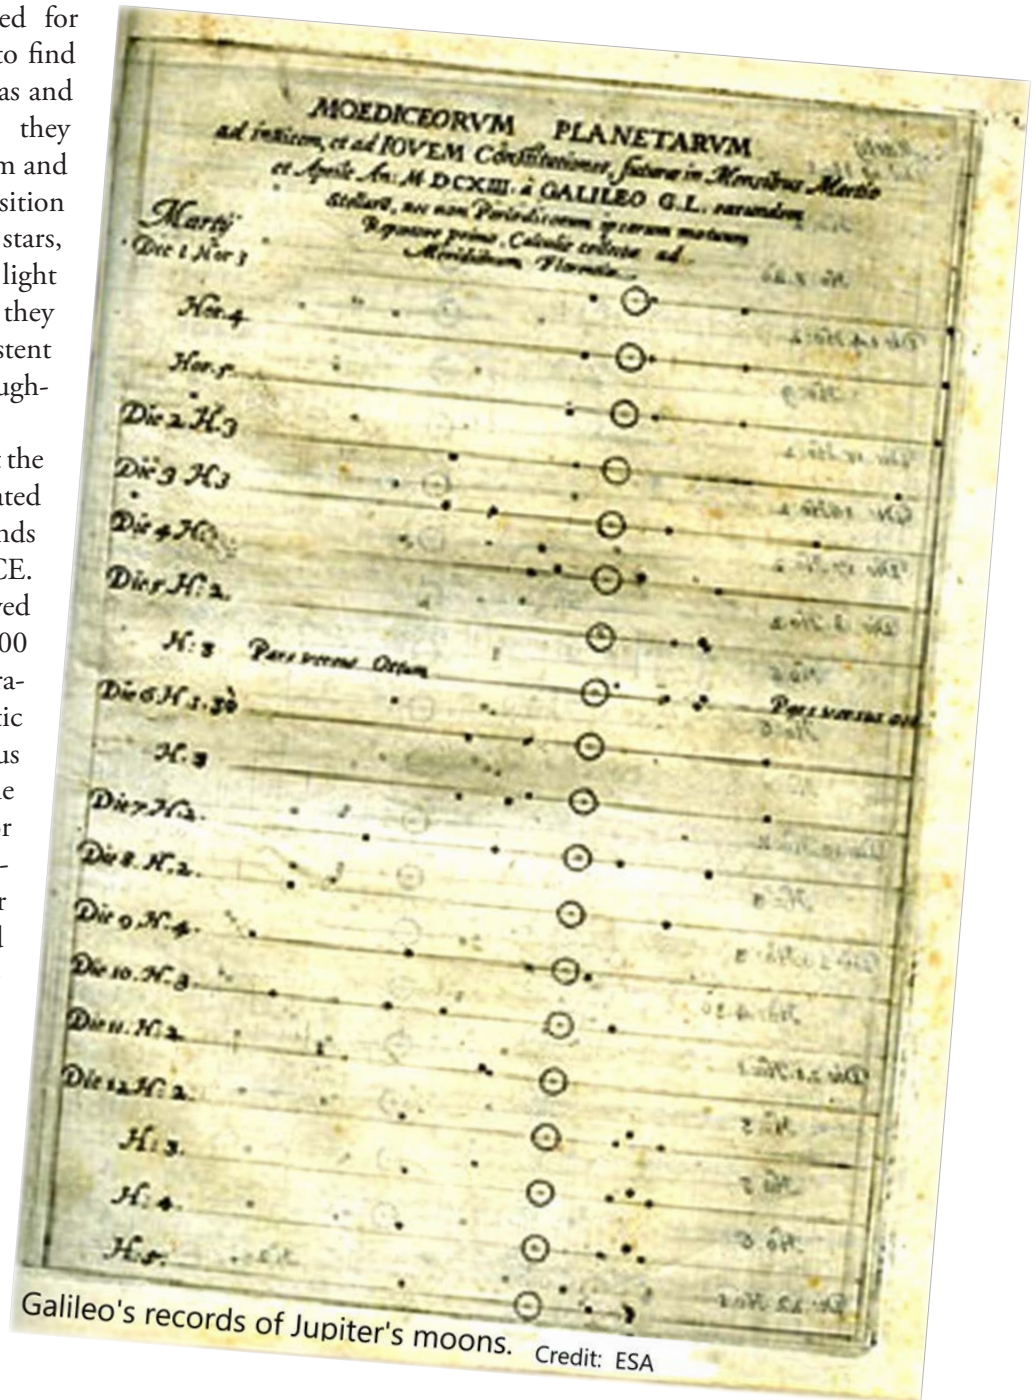 ed for
to find
as and
they
m and
sition
stars,
light
they
stent
ugh-
t the
ated
nds
CE.
ved
00
ra-
tic
us
e
or
-
r
d
MOEDICEORVM PLANETARVM
ad invicem, et ad IOVEM Constitutiones, futurae in Mensibus Martio
et Aprile An: M DCXIII. à GALILEO G.L. earundem
Stellarū, nec non Periodicorum ipsarum motuum
Repertore primo. Calculis collectae ad
Meridianum Florentiae
Martij
Die 1 Hor 3
Hor. 4
Hor. 5.
Die 2 H. 3
Die 3 H 3
Die 4 H:
Die 5 H: 2.
H: 3 Pars versus Ortum Pars versus occ
Die 6 H 1.30
H. 3
Die 7. H. 2.
Die 8. H. 2.
Die 9. H. 4.
Die 10. H. 3
Die 11. H: 2
Die 12 H: 2.
H: 3.
H: 4.
H: 5.
Galileo's records of Jupiter's moons.
Credit: ESA